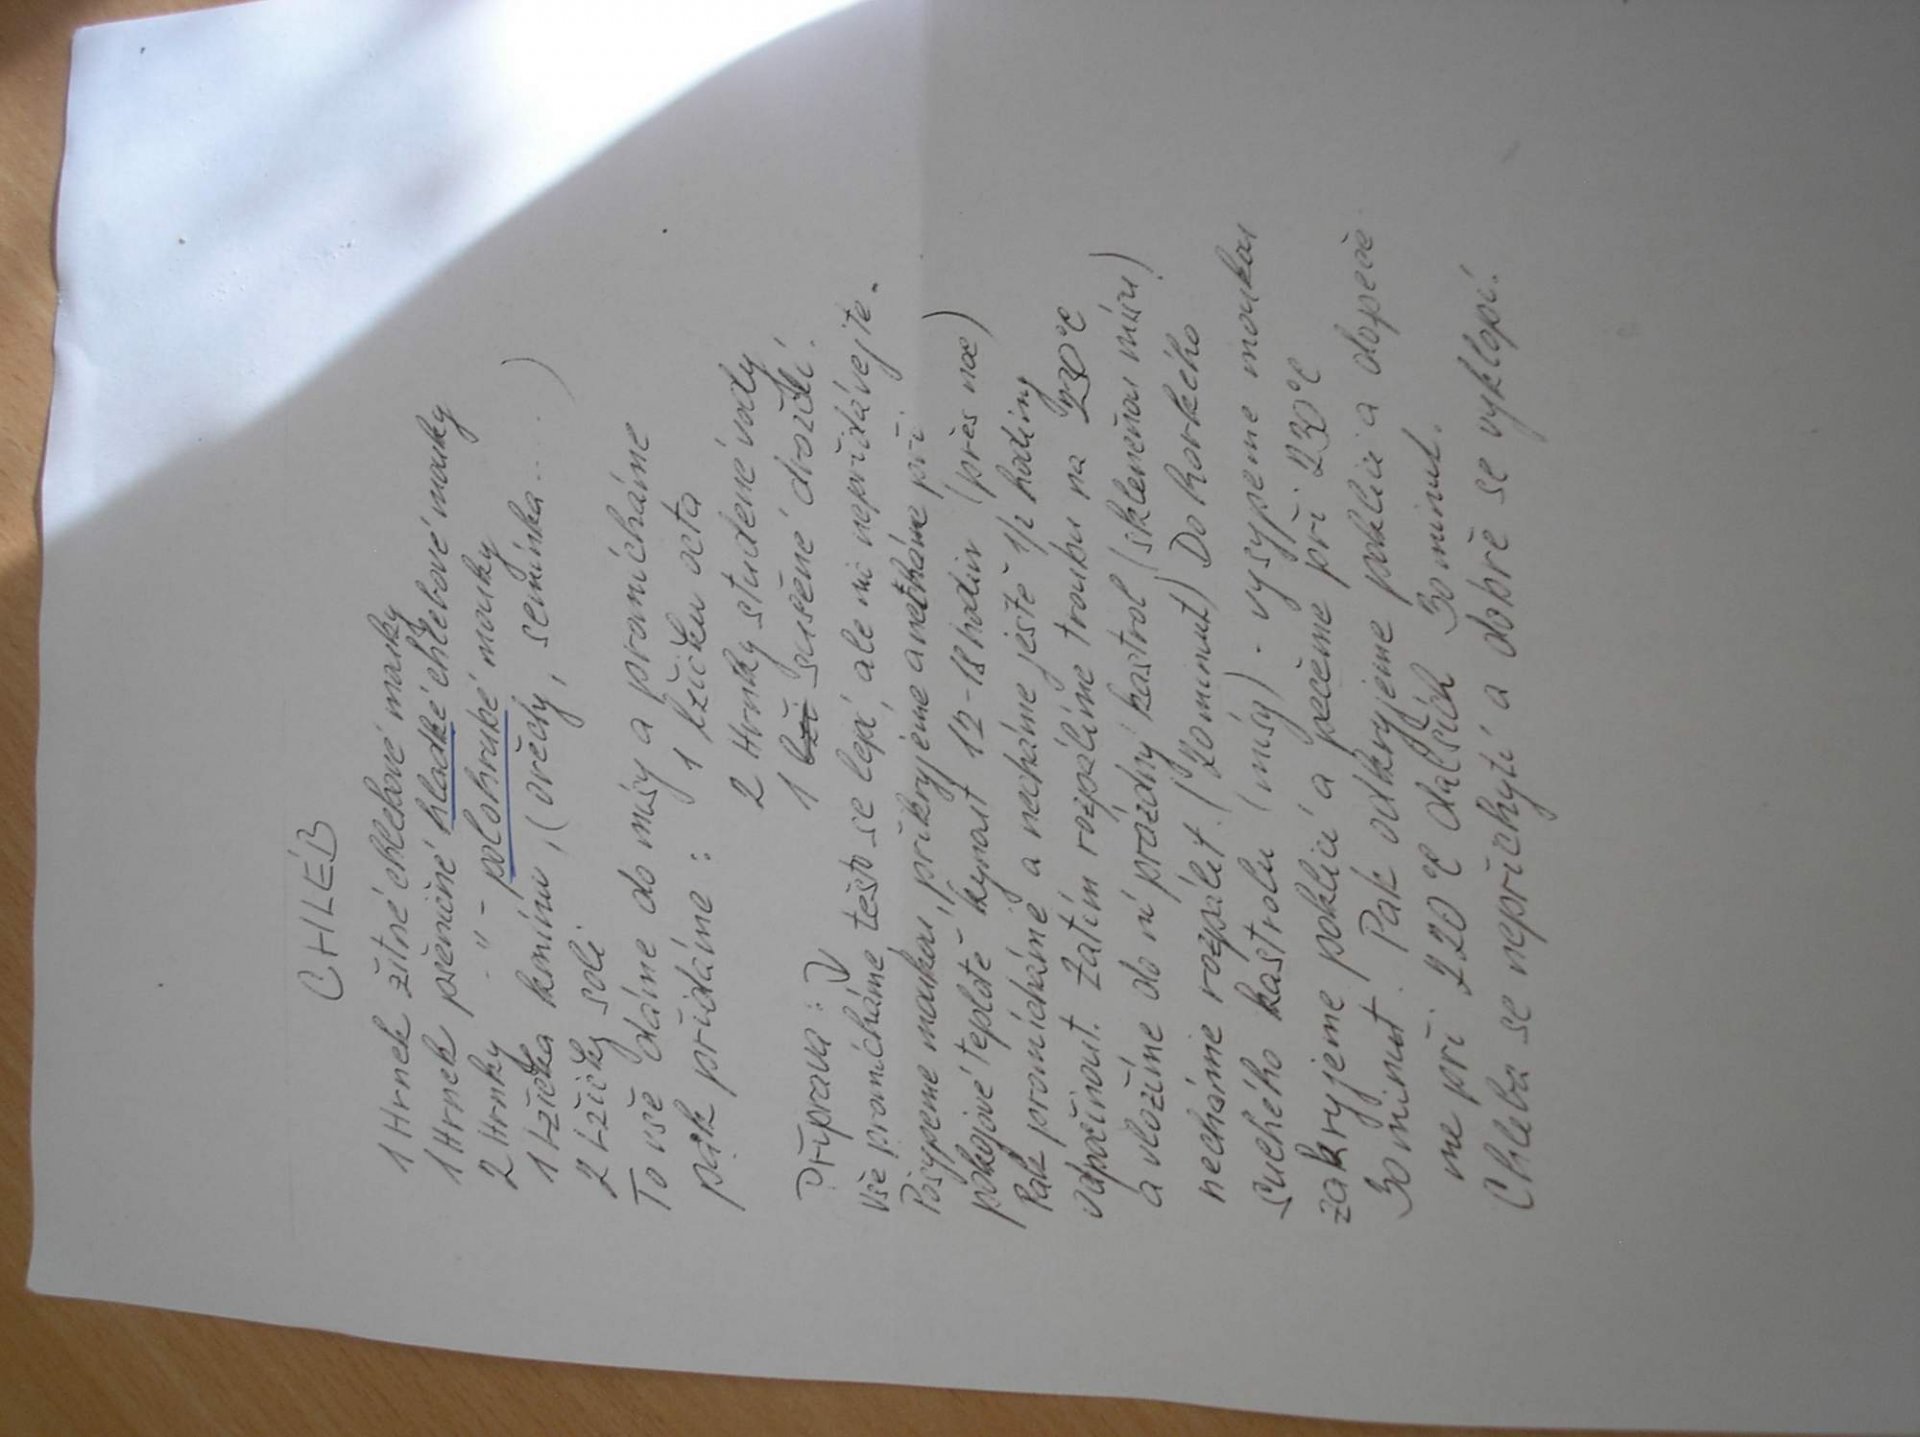 CHLÉB
1 Hrnek žitné chlebové mouky
1 Hrnek pšeničné hladké chlebové mouky
2 Hrnky -"- polohrubé mouky
1 Lžička kmínu, (ořechy, semínka....)
2 Lžičky soli
To vše dáme do mísy a promícháme
pak přidáme: 1 lžičku octa
2 Hrnky studené vody
1 lži sušené droždí.
Příprava:
Vše promícháme těsto se lepí, ale nic nepřidávejte.
Posypeme moukou, přikryjeme a necháme při
pokojové teplotě kynout 12-18 hodin (přes noc)
Pak promícháme a necháme ještě 1/2 hodiny
odpočinout. Zatím rozpálíme troubu na 230°C
a vložíme do ní prázdný kastrol (skleněnou mísu)
necháme rozpálit. (20 minut) Do horkého
suchého kastrolu (mísy) - vysypeme moukou
zakryjeme poklicí a pečeme při 230°C
30 minut. Pak odkryjeme poklici a dopeče
me při 220°C dalších 30 minut.
Chleba se nepřichytí a dobře se vyklopí.